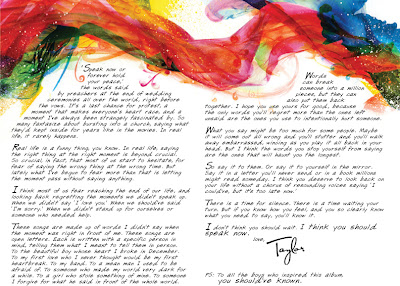 "Speak now or
forever hold
your peace,"
the words said
by preachers at the end of wedding
ceremonies all over the world, right before
the vows. It's a last chance for protest, a
moment that makes everyone's heart race, and a
moment I've always been strangely fascinated by. So
many fantasize about bursting into a church, saying what
they'd kept inside for years like in the movies. In real
life, it rarely happens.
Real life is a funny thing, you know. In real life, saying
the right thing at the right moment is beyond crucial.
So crucial, in fact, that most of us start to hesitate, for
fear of saying the wrong thing at the wrong time. But
lately what I've begun to fear more than that is letting
the moment pass without saying anything.
I think most of us fear reaching the end of our life, and
looking back regretting the moments we didn't speak up.
When we didn't say 'I love you.' When we should've said
'I'm sorry.' When we didn't stand up for ourselves or
someone who needed help.
These songs are made up of words I didn't say when
the moment was right in front of me. These songs are
open letters. Each is written with a specific person in
mind, telling them what I meant to tell them in person.
To the beautiful boy whose heart I broke in December.
To my first love who I never thought would be my first
heartbreak. To my band. To a mean man I used to be
afraid of. To someone who made my world very dark for
a while. To a girl who stole something of mine. To someone
I forgive for what he said in front of the whole world.
Words
can break
someone into a million
pieces, but they can
also put them back
together. I hope you use yours for good, because
the only words you'll regret more than the ones left
unsaid are the ones you use to intentionally hurt someone.
What you say might be too much for some people. Maybe
it will come out all wrong and you'll stutter and you'll walk
away embarrassed, wincing as you play it all back in your
head. But I think the words you stop yourself from saying
are the ones that will haunt you the longest.
So say it to them. Or say it to yourself in the mirror.
Say it in a letter you'll never send or in a book millions
might read someday. I think you deserve to look back on
your life without a chorus of resounding voices saying 'I
could've, but it's too late now.'
There is a time for silence. There is a time waiting your
turn. But if you know how you feel, and you so clearly know
what you need to say, you'll know it.
I don't think you should wait. I think you should
speak now.
love,
Taylor
PS: To all the boys who inspired this album,
you should've known.